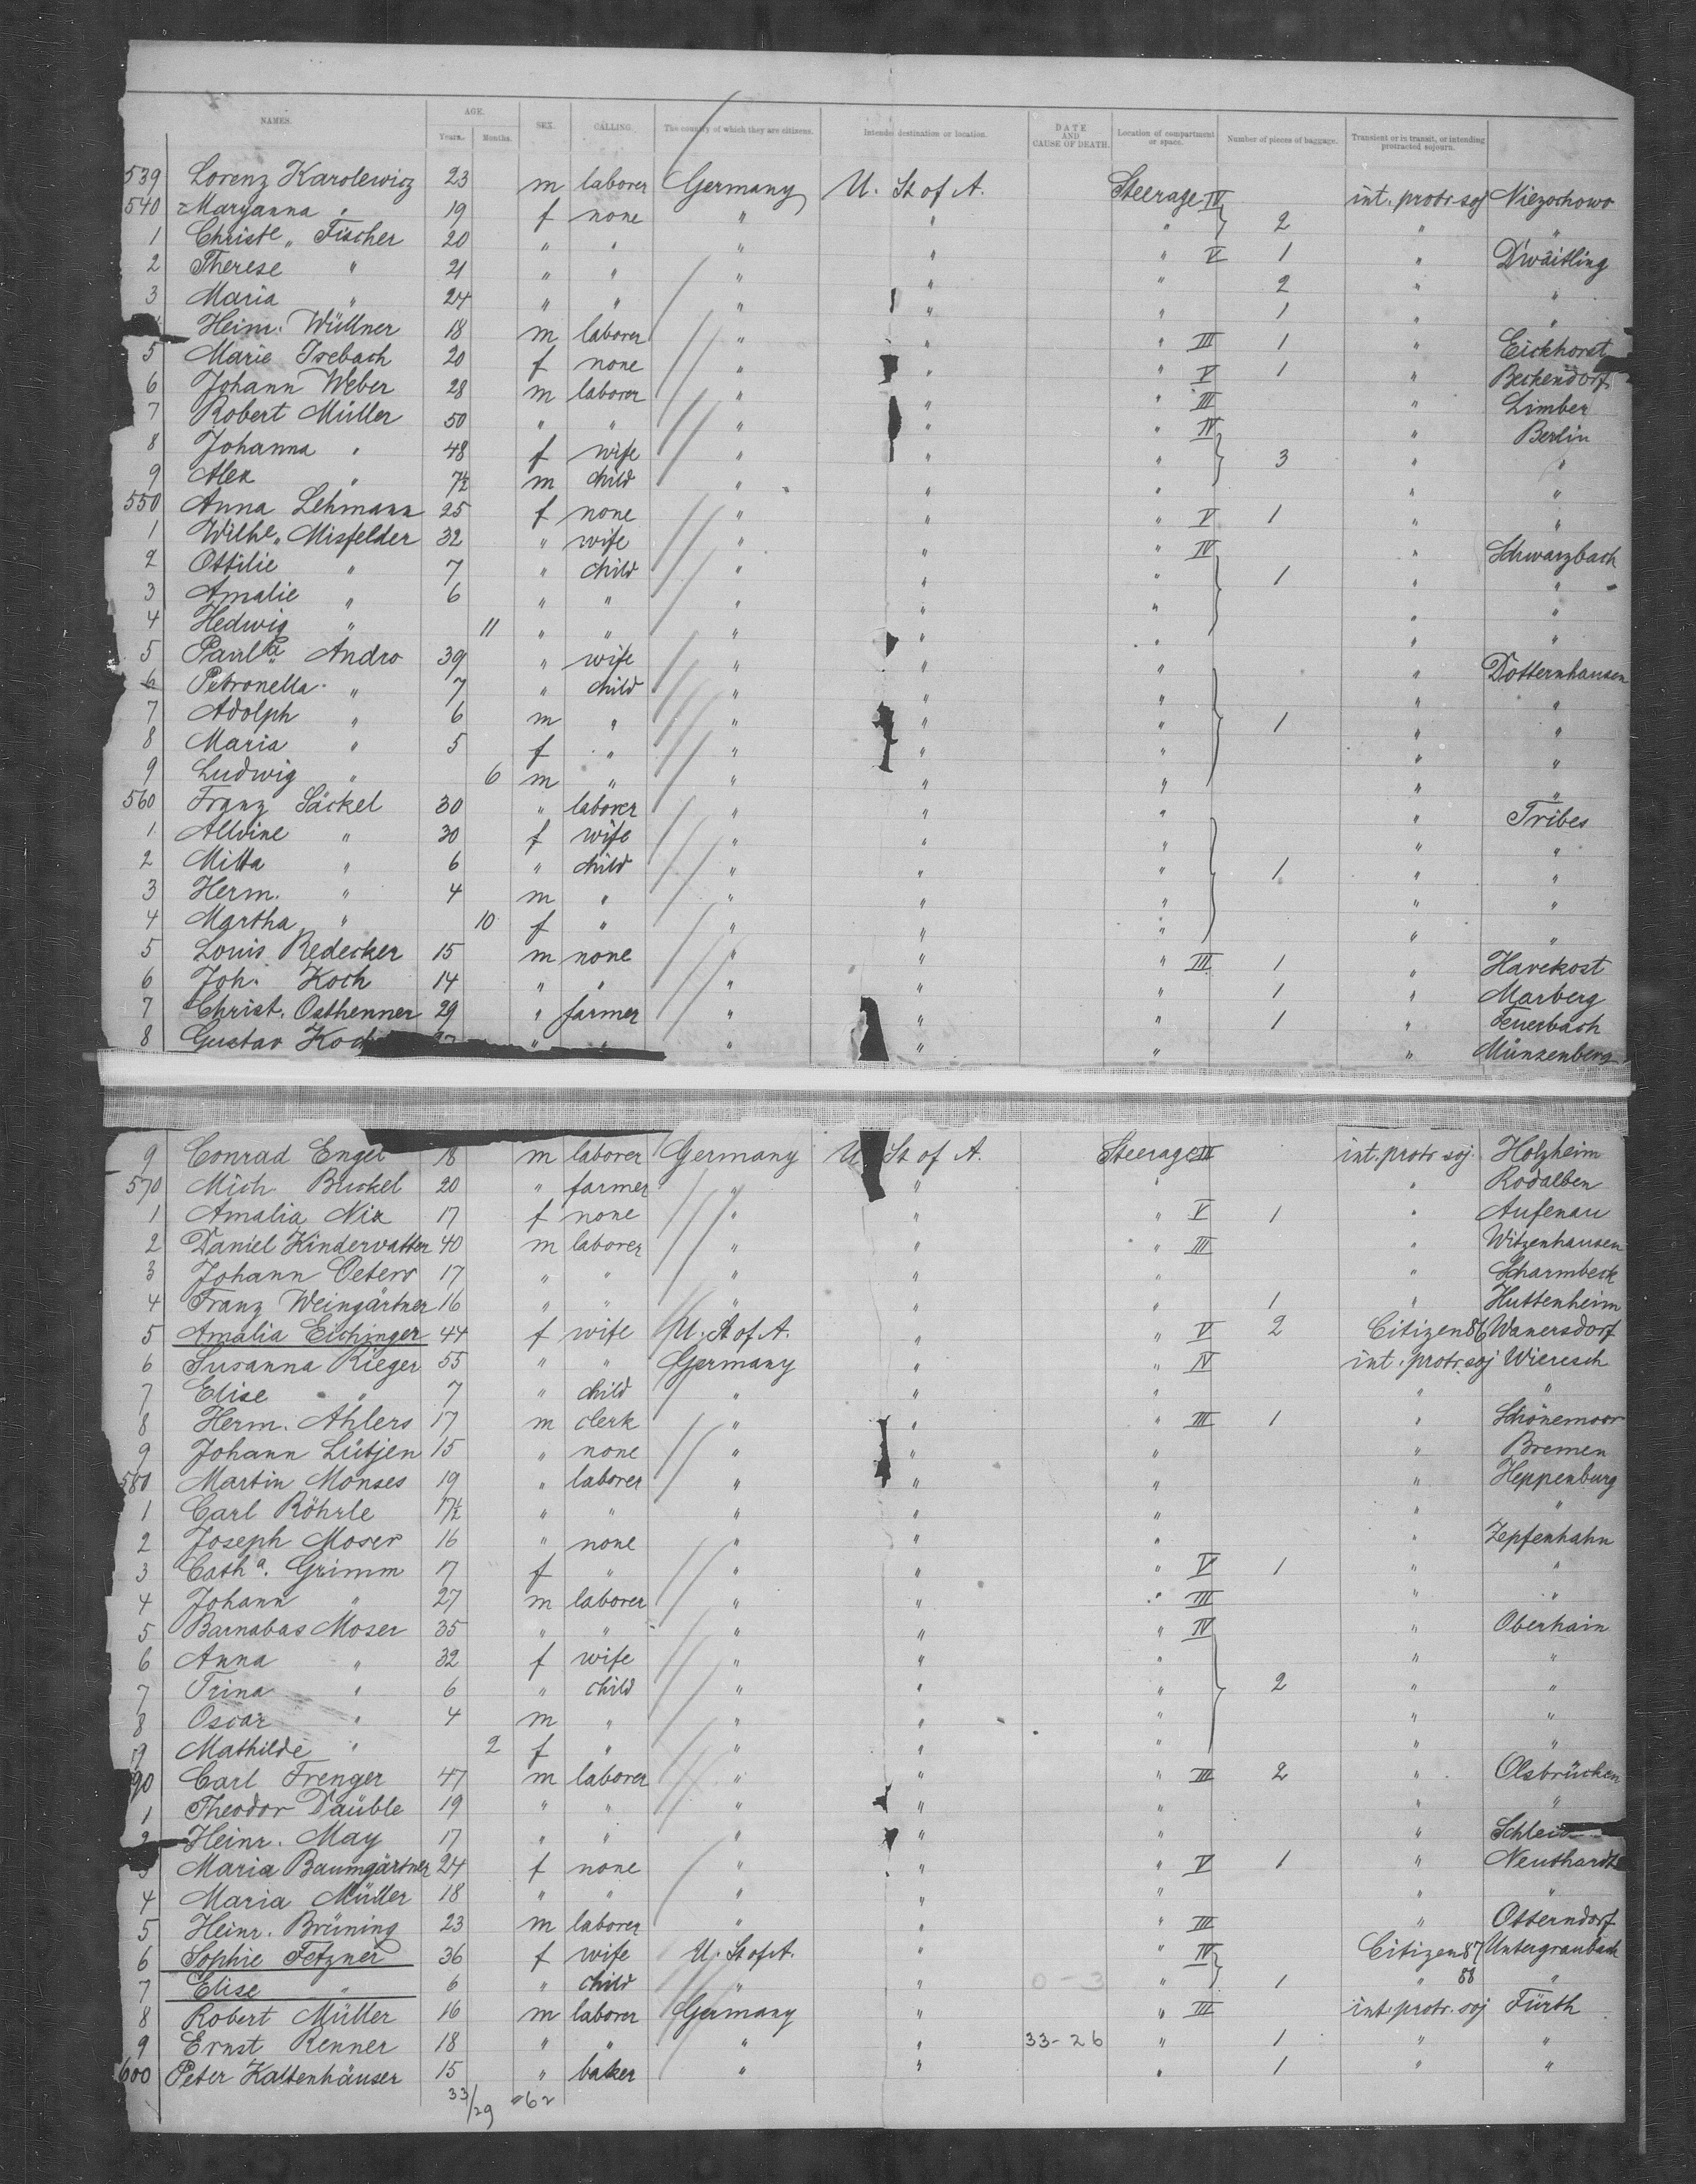 NAMES. AGE. Years. Months. SEX. CALLING. The country of which they are citizens. Intended destination or location. DATE AND CAUSE OF DEATH. Location of compartment or space. Number of pieces of baggage. Transient or in transit, or intending protracted sojourn.
539 Lorenz Karolewicz 23 m laborer Germany U. St of A. Steerage IV int. protr soj Niezochowo
540 Maryanna " 19 f none " " " 2 " "
1 Christe " Fischer 20 " " " " " V 1 " D'waitling
2 Therese " 21 " " " " " 2 " "
3 Maria " 24 " " " " " 1 " "
Heinr. Wüllner 18 m laborer " " " III 1 " Eickhorst
5 Marie Isebach 20 f none " " " V 1 " Beckendorf
6 Johann Weber 28 m laborer " " " III " Limber
7 Robert Müller 50 " " " " " IV " Berlin
8 Johanna " 48 f wife " " " 3 " "
9 Alex " 7½ m child " " " " "
550 Anna Lehmann 25 f none " " " V 1 " "
1 Wilhe " Misfelder 32 " wife " " " IV " Schwarzbach
2 Ottilie " 7 " child " " " 1 " "
3 Amalie " 6 " " " " " " "
4 Hedwig " 11 " " " " " " "
5 Paulne Andro 39 " wife " " " " Dotternhausen
6 Petronella " 7 " child " " " " "
7 Adolph " 6 m " " " " 1 " "
8 Maria " 5 f " " " " " "
9 Ludwig " 6 m " " " " " "
560 Franz Säckel 30 " laborer " " " " Tribes
1 Allvine " 30 f wife " " " " "
2 Milta " 6 " child " " " 1 " "
3 Herm. " 4 m " " " " "
4 Martha " 10 f " " " " " "
5 Louis Redecker 15 m none " " " III 1 " Havekost
6 Joh. Koch 14 " " " " " 1 " Marberg
7 Christ. Osthenner 29 " farmer " " " 1 " Feuerbach
8 Gustav Koch " " " " " " Münzenberg
9 Conrad Engel 18 m laborer Germany U. St of A. Steerage III int. protr soj. Holzheim
570 Mich Buckel 20 " farmer " " " " Rodalben
1 Amalia Nix 17 f none " " " V 1 " Aufenau
2 Daniel Kindervatter 40 m laborer " " " III " Witzenhausen
3 Johann Oeters 17 " " " " " " Scharmbeck
4 Franz Weingärtner 16 " " " " " 1 " Huttenheim
5 Amalia Eichinger 44 f wife U. St of A. " " V 2 Citizen 86 Wanersdorf
6 Susanna Rieger 55 " " Germany " " IV int. protr. soj Wieresch
7 Elise " 7 " child " " " " "
8 Herm. Ahlers 17 m clerk " " " III 1 " Schönemoor
9 Johann Lütjen 15 " none " " " " Bremen
580 Martin Monses 19 " laborer " " " " Heppenburg
1 Carl Röhrle 17½ " " " " " " "
2 Joseph Moser 16 " none " " " " Zepfenhahn
3 Catha. Grimm 17 f " " " " V 1 " "
4 Johann " 27 m laborer " " " III " "
5 Barnabas Moser 35 " " " " " IV " Oberhain
6 Anna " 32 f wife " " " " "
7 Trina " 6 " child " " " 2 " "
8 Oscar " 4 m " " " " " "
9 Mathilde " 2 f " " " " " "
90 Carl Frenger 47 m laborer " " " III 2 " Olsbrücken
1 Theodor Däuble 19 " " " " " " "
2 Heinr. May 17 " " " " " "
3 Maria Baumgärtner 24 f none " " " V 1 " Neuthardt
4 Maria Müller 18 " " " " " " "
5 Heinr. Brüning 23 m laborer " " " III " Otterndorf
6 Sophie Fetzner 36 f wife U. St of A. " " IV Citizen 87 Untergraubach
7 Elise " 6 " child " " 0-3 " 1 " 88 "
8 Robert Müller 16 m laborer Germany " " III int. protr. soj Fürth
9 Ernst Renner 18 " " " " 33-26 " 1 " "
600 Peter Kaltenhäuser 15 " baker " " " 1 " "
33/29 = 62